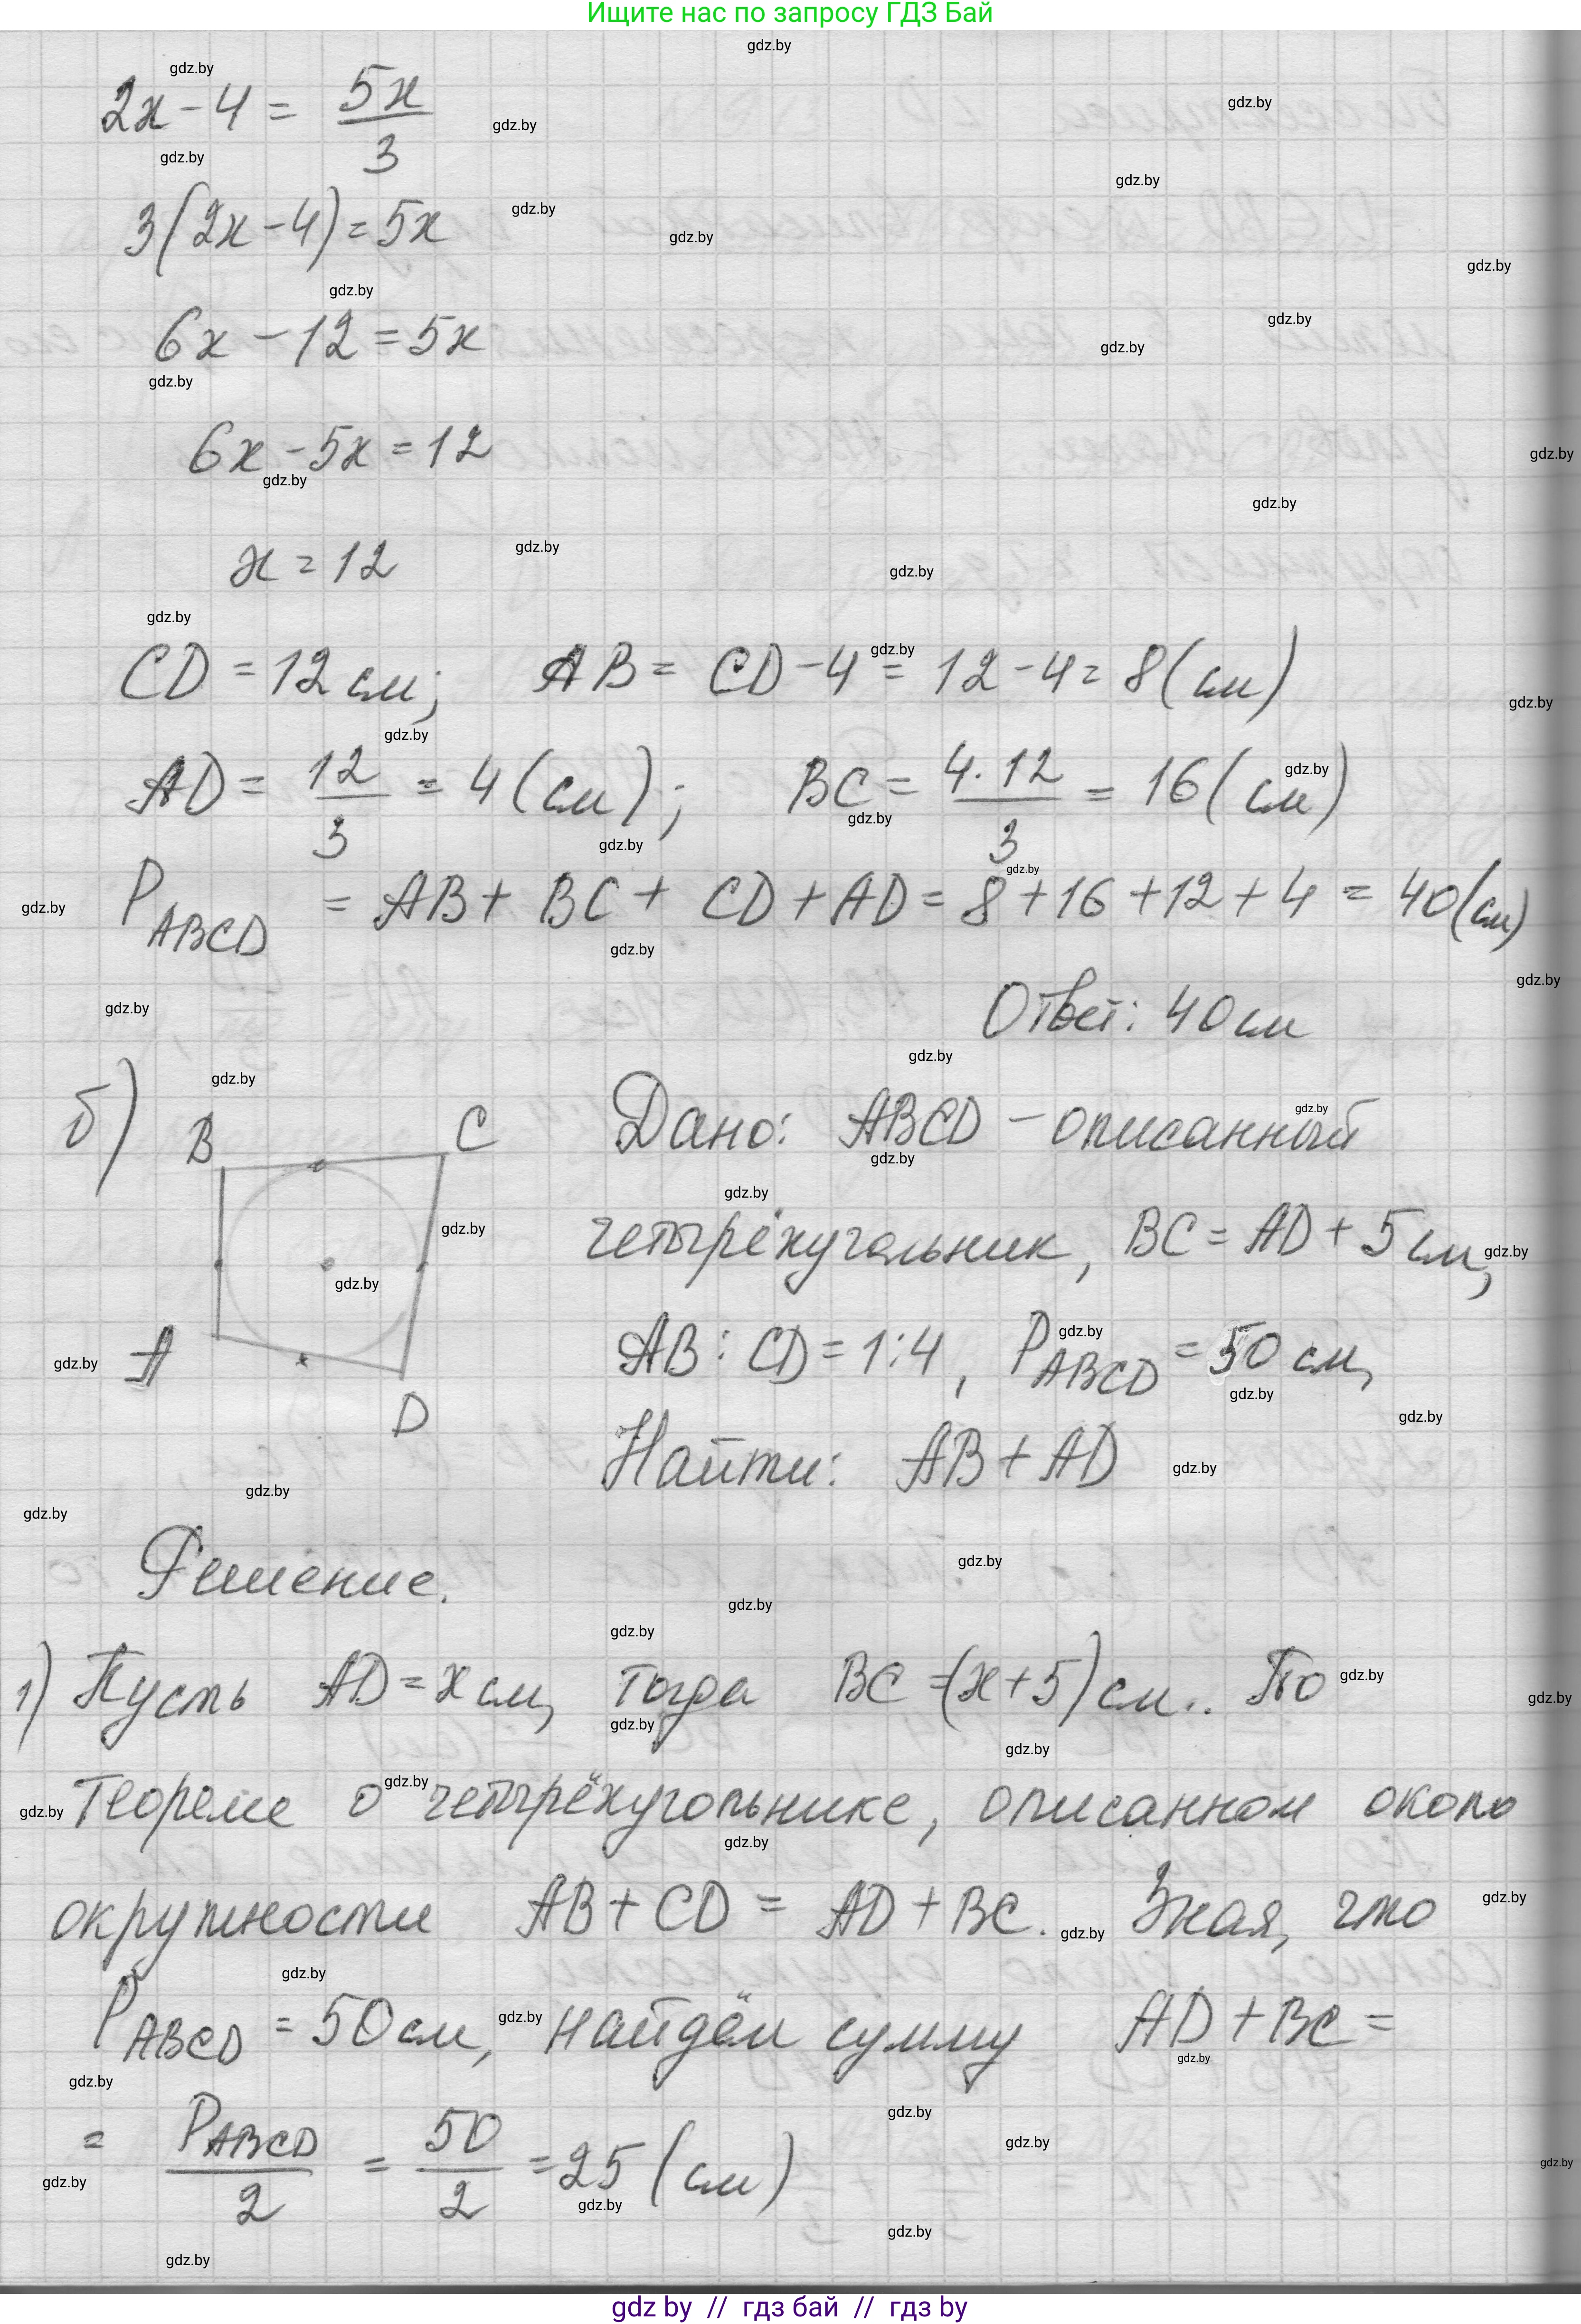 Ищите нас по запросу ГДЗ Бай
2x - 4 = 5x/3
3(2x - 4) = 5x
6x - 12 = 5x
6x - 5x = 12
x = 12
CD = 12 см; AB = CD - 4 = 12 - 4 = 8 (см)
AD = 12/3 = 4 (см); BC = 4·12/3 = 16 (см)
P ABCD = AB + BC + CD + AD = 8 + 16 + 12 + 4 = 40 (см)
Ответ: 40 см
б) B C A D
Дано: ABCD - описанный
четырёхугольник, BC = AD + 5 см,
AB : CD = 1 : 4, P ABCD = 50 см,
Найти: AB + AD
Решение.
1) Пусть AD = x см, тогда BC = (x + 5) см.. По
теореме о четырёхугольнике, описанном около
окружности AB + CD = AD + BC. Зная, что
P ABCD = 50 см, найдём сумму AD + BC =
= P ABCD/2 = 50/2 = 25 (см)
gdz.by
gdz by // гдз бай // гдз by